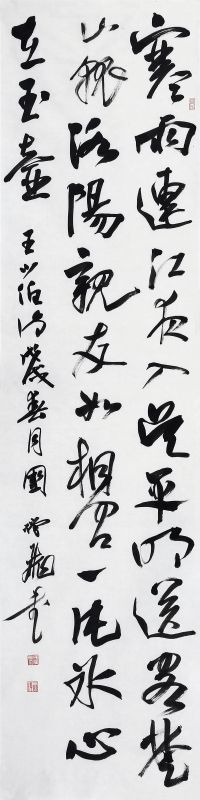 寒雨連江夜入吴平明送客楚
山孤洛陽親友如相問一片冰心
在玉壺 王少伯詩 歲春月國 書